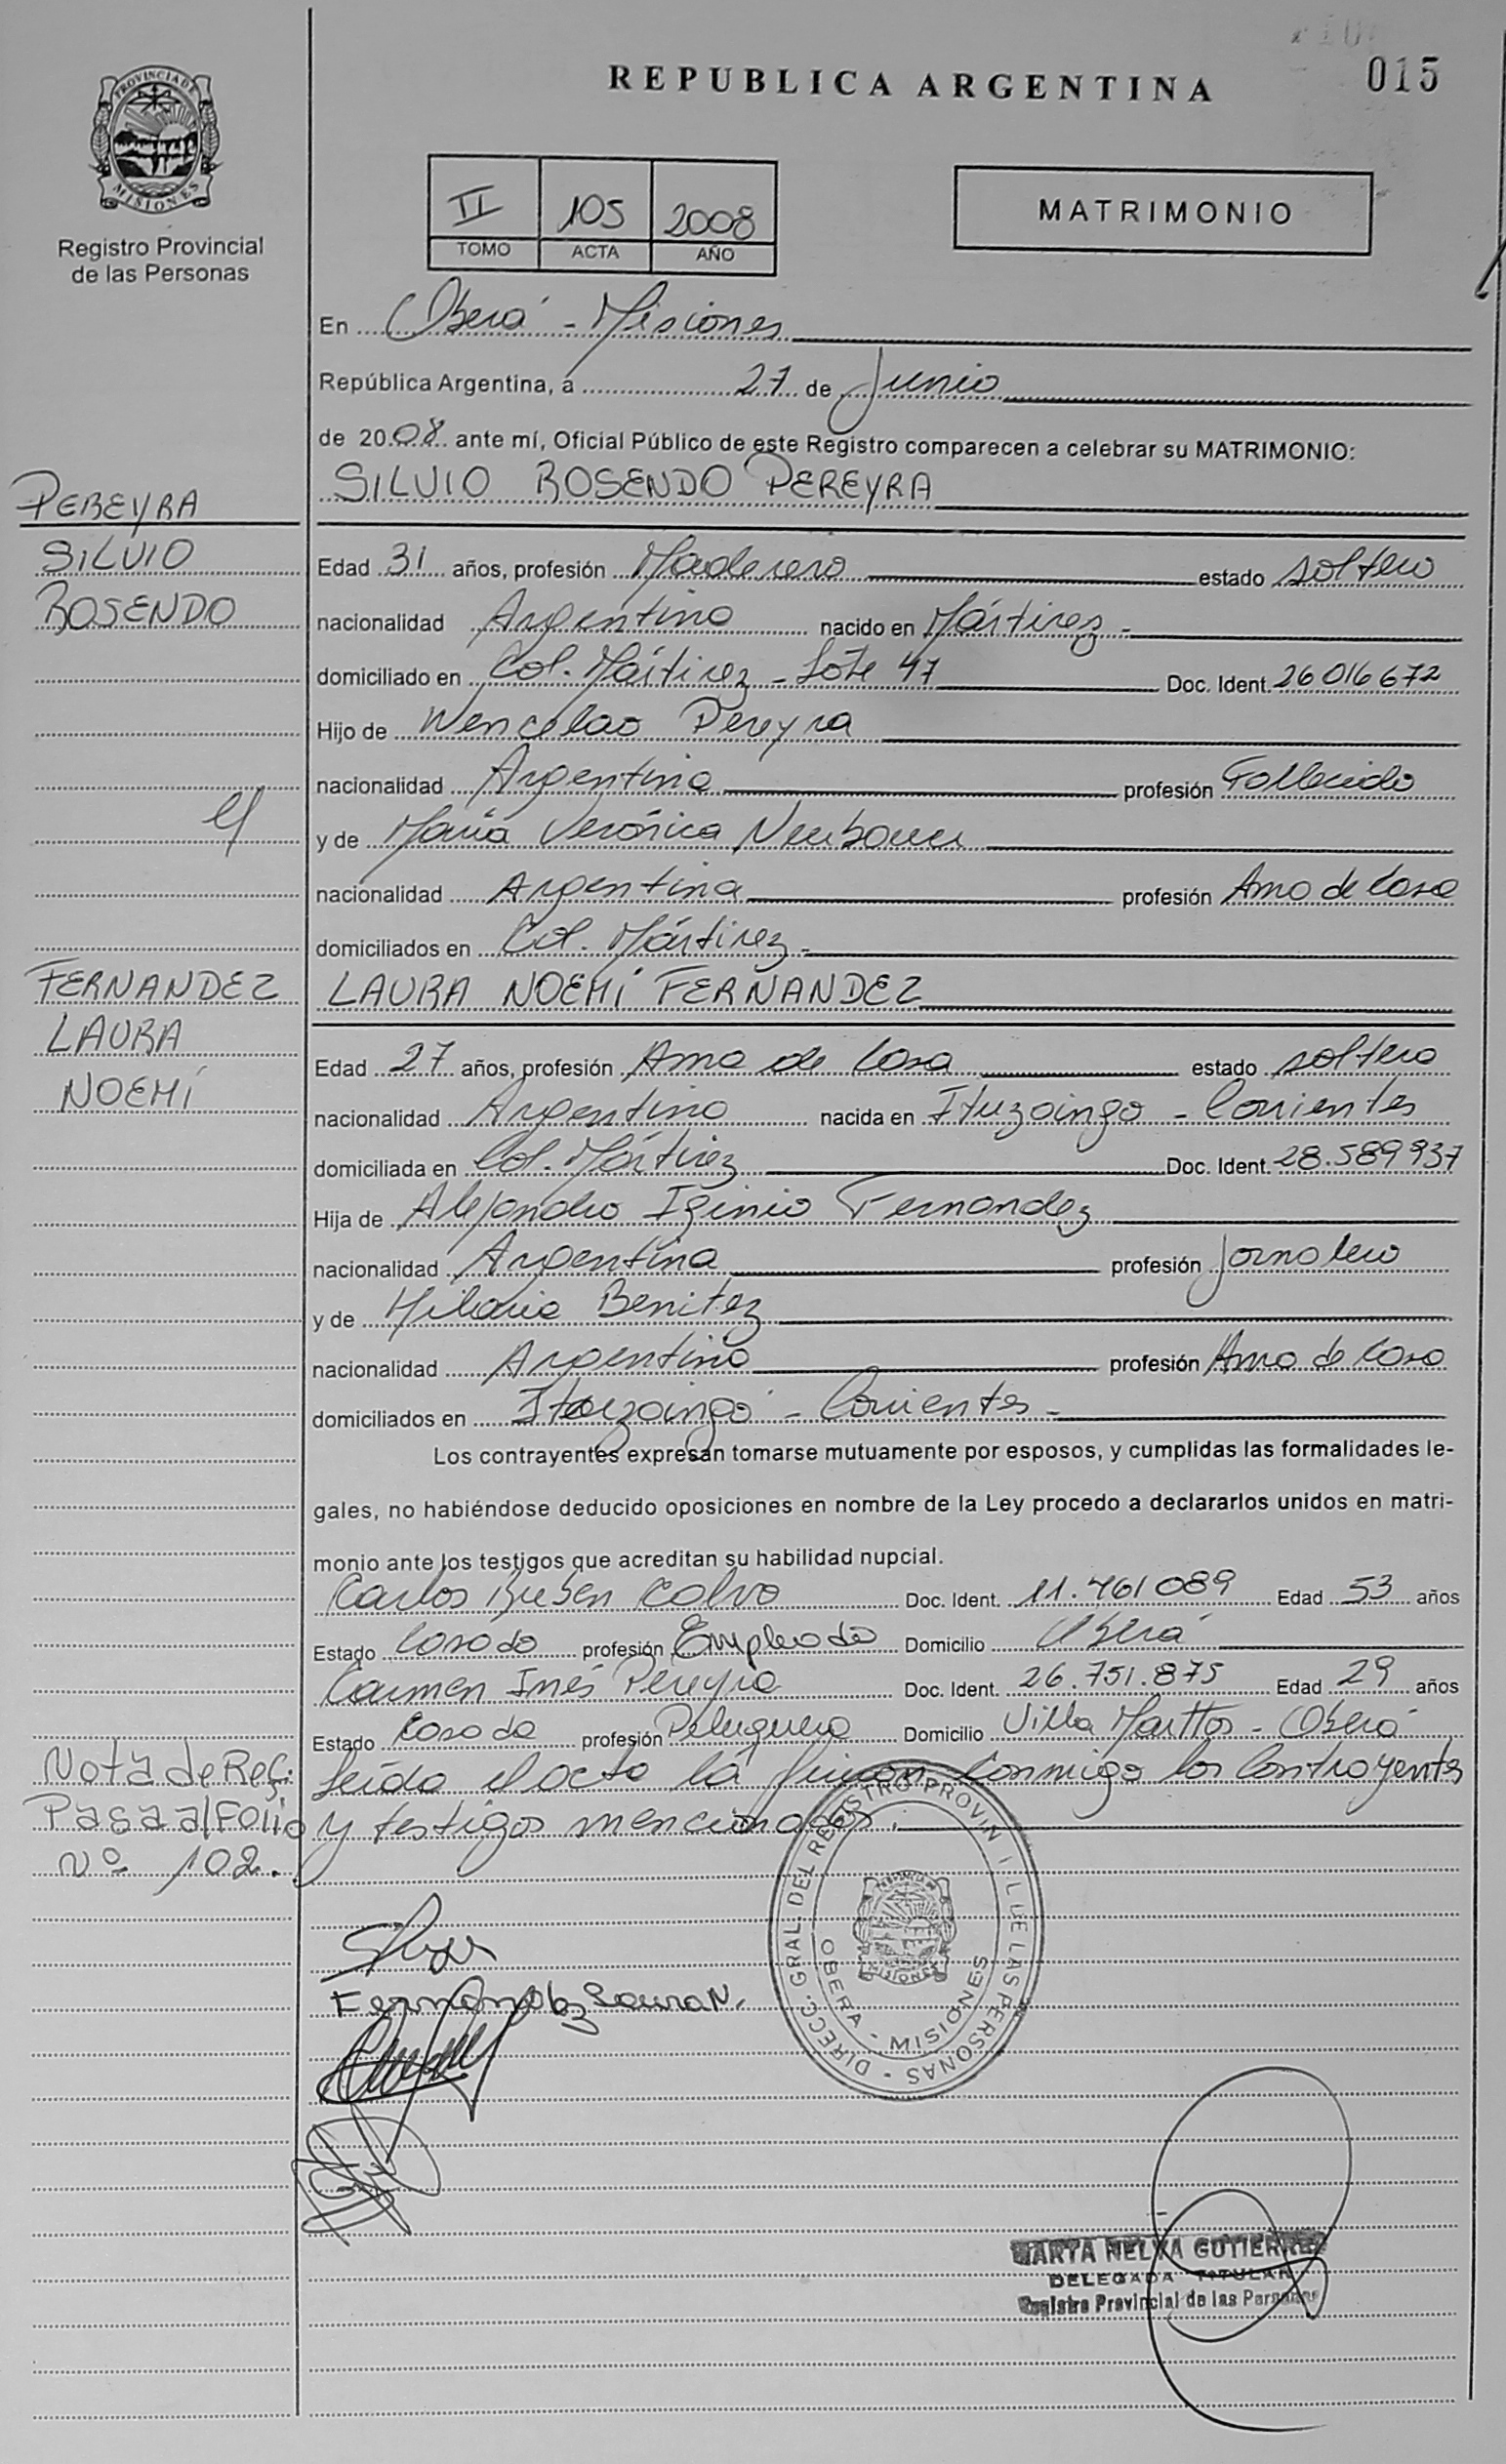 015
REPUBLICA ARGENTINA
PROVINCIA DE
MISIONES
Registro Provincial
de las Personas
II 105 2008
TOMO ACTA AÑO
MATRIMONIO
En Oberá - Misiones
República Argentina, á 27 de Junio
de 2008 ante mí, Oficial Público de este Registro comparecen a celebrar su MATRIMONIO:
PEREYRA
SILVIO
ROSENDO
SILVIO ROSENDO PEREYRA
Edad 31 años, profesión Maderero estado soltero
nacionalidad Argentina nacido en Mártirez -
domiciliado en Col. Mártirez - Lote 47 Doc. Ident. 26016672
Hijo de Wencelao Pereyra
nacionalidad Argentina profesión Fallecido
y de María Verónica
nacionalidad Argentina profesión Ama de Casa
domiciliados en Col. Mártirez -
FERNANDEZ
LAURA
NOEMÍ
LAURA NOEMÍ FERNANDEZ
Edad 27 años, profesión Ama de Casa estado soltera
nacionalidad Argentina nacida en Ituzaingo - Corrientes
domiciliada en Col. Mártirez Doc. Ident. 28.589937
Hija de Alejandro Iginio Fernandez
nacionalidad Argentina profesión Jornalero
y de Hilaria Benitez
nacionalidad Argentina profesión Ama de Casa
domiciliados en Ituzaingó - Corrientes -
Los contrayentes expresan tomarse mutuamente por esposos, y cumplidas las formalidades le-
gales, no habiéndose deducido oposiciones en nombre de la Ley procedo a declararlos unidos en matri-
monio ante los testigos que acreditan su habilidad nupcial.
Carlos Ruben Calvo Doc. Ident. 11.461089 Edad 53 años
Estado Casado profesión Empleado Domicilio Oberá
Carmen Inés Pereyra Doc. Ident. 26.751.875 Edad 29 años
Estado Casada profesión Peluquera Domicilio Villa - Oberá
Nota de Ref:
Pasa al Folio
Nº 102.
Leída el acta la firman conmigo los Contrayentes
y testigos mencionados.
Fernandez Laura N.
DIRECC. GRAL. DEL REGISTRO PROVINCIAL DE LAS PERSONAS -
OBERA - MISIONES
MISIONES
MARTA NELVA GUTIERREZ
DELEGADA TITULAR
Registro Provincial de las Personas